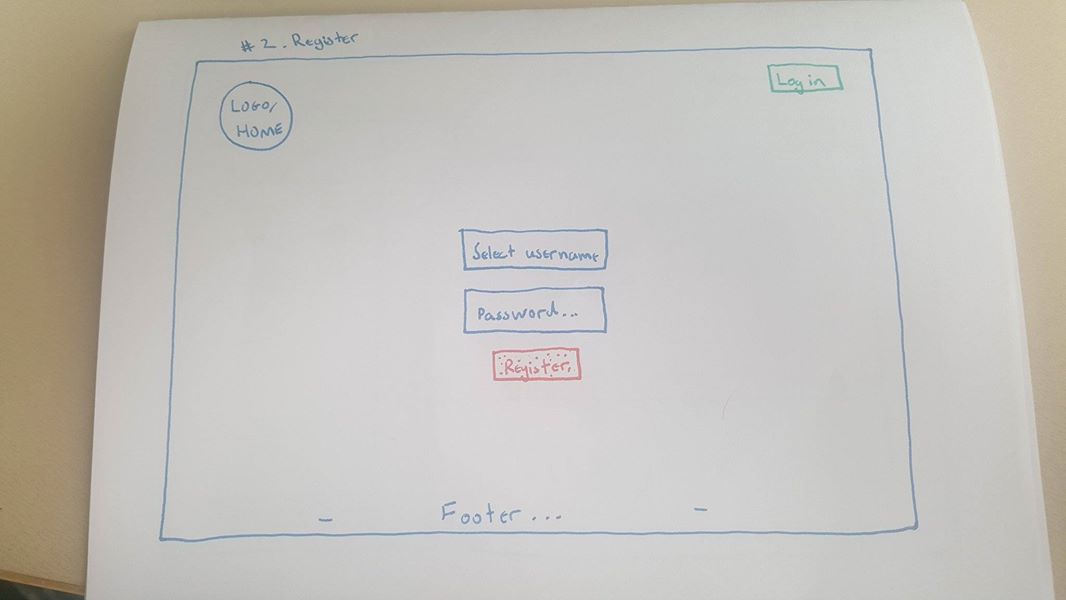 #2. Register
Log in
LOGO/
HOME
Select username
Password...
Register
- Footer... -